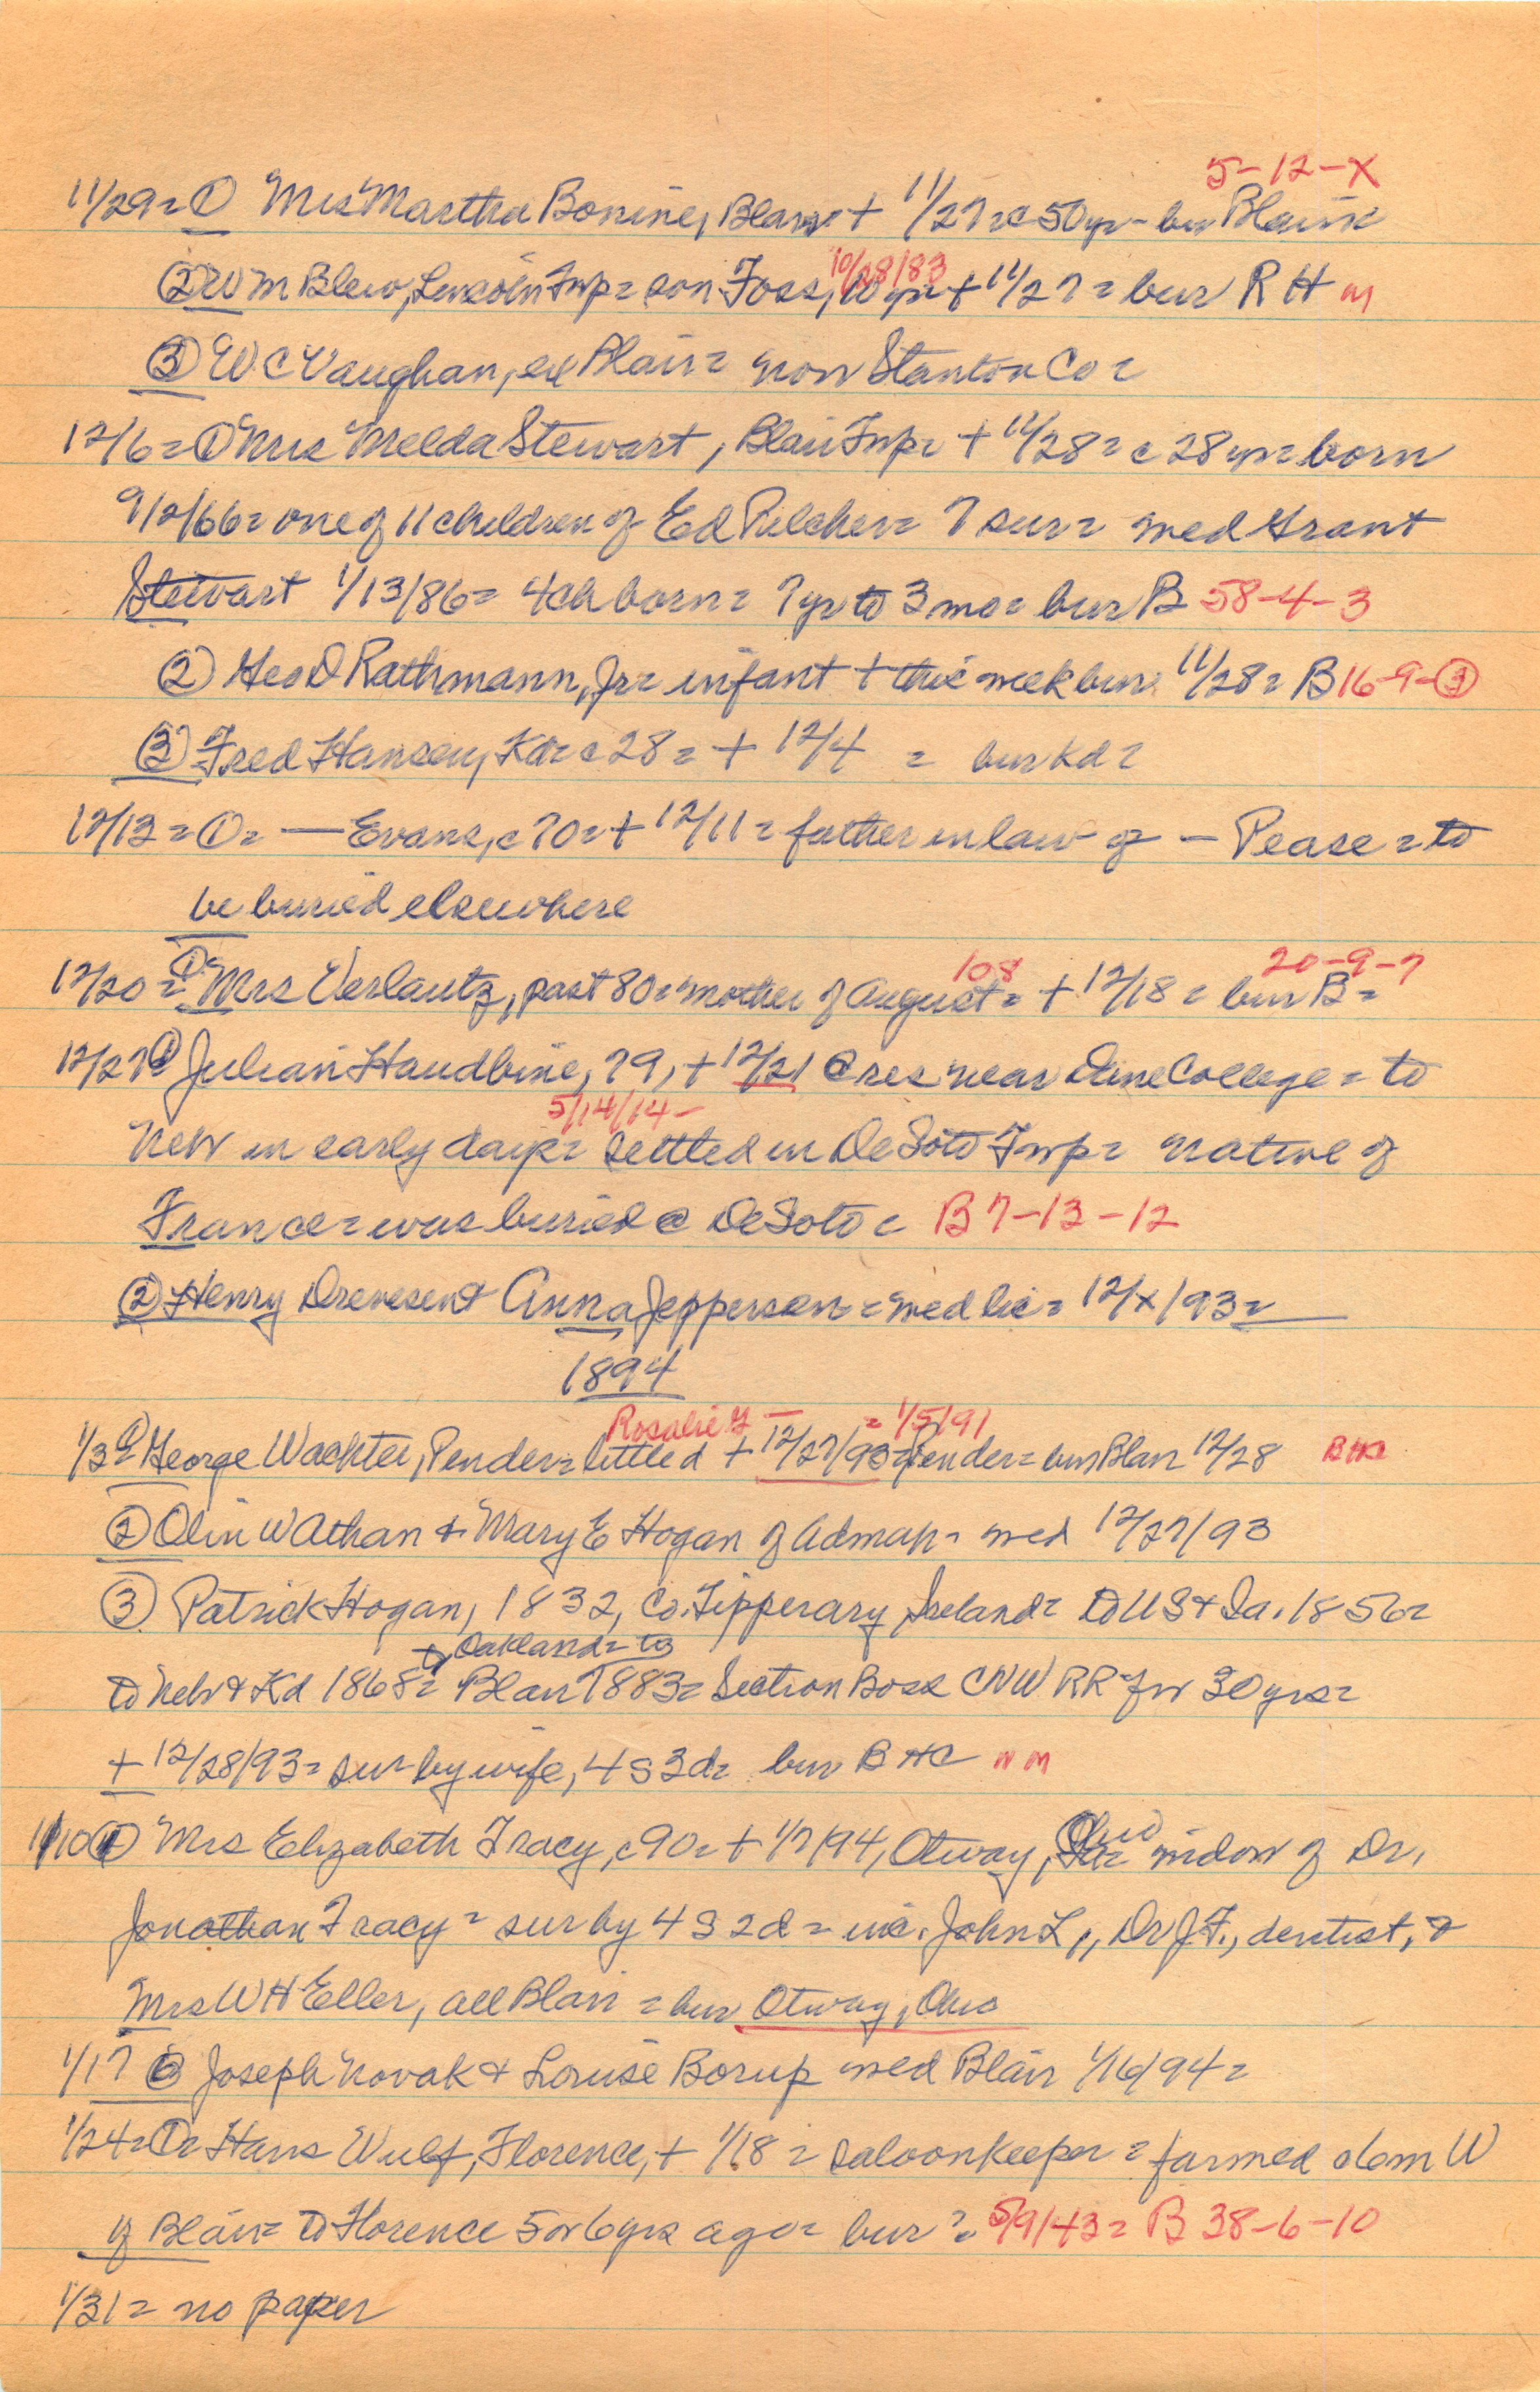 5-12-X
11/29= ① Mrs Martha Bonine, Blair + 11/27= c 50yr - bur Blair
10/28/83
② Wm Blew, Lincoln Twp= son Foss, 10 yr + 11/27= bur R H m
③ W C Vaughan, ex Blair= now Stanton Co=
12/6= ① Mrs Melda Stewart, Blair Twp= + 11/28= c 28yr= born
9/2/66= one of 11 children of Ed Pilcher= 7 sur= med Grant
Stewart 1/13/86= 4ch born= 7yr to 3 mo= bur B 58-4-3
② Geo D Rathmann, Jr= infant + this week bur 11/28= B 16-9-③
③ Fred Hansen, Kd= c 28= + 12/4 = bur Kd=
12/13= ①= — Evans, c 70= + 12/11= father in law of — Pease= to
be buried elsewhere
108 20-9-7
12/20= ① Mrs Verlautz, past 80= mother of August= + 12/18= bur B=
12/27 ① Julian Haudbine, 79, + 12/21 @ res near Dane College= to
5/14/14-
Neb in early days= settled in DeSoto Twp= native of
France= was buried @ DeSoto= B 7-13-12
② Henry Drevesen + Anna Jepperson= med lic= 12/x/93=
1894
Rosalie G — = 1/5/91
1/3 ① George Wachter, Pender= little d + 12/27/93= Pender= bur Blair 12/28 BHC
② Olin W Athan & Mary E Hogan of Admah= med 12/27/93
③ Patrick Hogan, 1832, Co. Tipperary, Ireland= to US & Ia. 1856=
to Oakland= to
to Neb & Kd 1868= Blair 1883= Section Boss CNW RR for 30 yrs=
+ 12/28/93= sur by wife, 4 S 3d= bur B HC n m
1/10 ① Mrs Elizabeth Tracy, c 90= + 1/7/94, Otway, Ohio= widow of Dr.
Jonathan Tracy= sur by 4 S 2d= inc. John L,, Dr J.F., dentist, &
Mrs W H Eller, all Blair= bur Otway, Ohio
1/17 ① Joseph Novak & Louise Borup med Blair 1/16/94=
1/24= ①= Hans Wulf, Florence, + 1/18= saloonkeeper= farmed 6m W
of Blair= to Florence 5 or 6 yrs ago= bur ?= 5/9/43= B 38-6-10
1/31= no paper